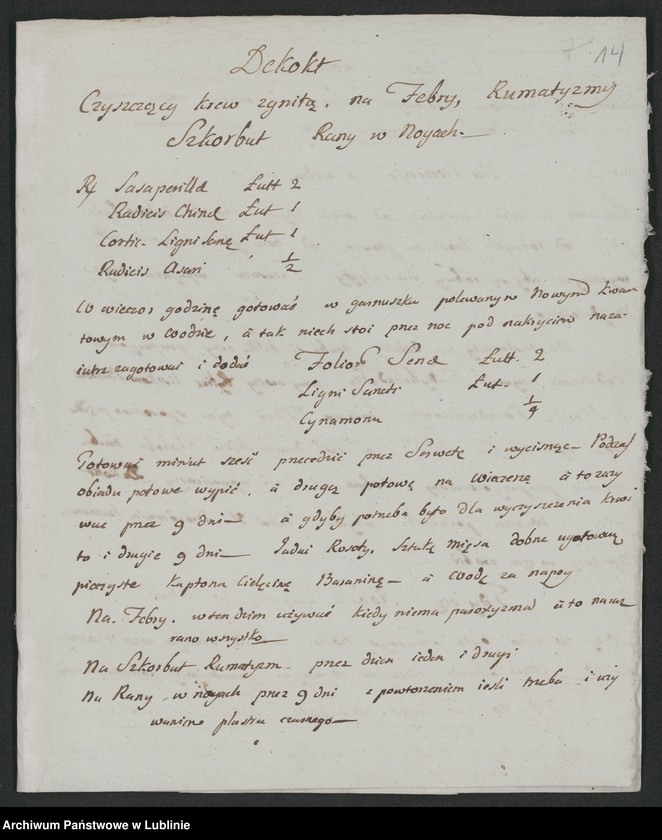 14
Dekokt
Czyszczący krew zgniłą, na Febry, Rumatyzmy
Szkorbut Rany w Nogach.
Rx Sasaperillæ Łutt 2
Radicis Chinæ Łut 1
Cortic. Ligni Sanę Łut 1
Radicis Asari 1/2
W wieczor godzinę gotować w garnuszku polewanym Nowym kwar
towym w Wodzie, a tak niech stoi przez noc pod nakryciem naza-
iutrz zagotować i dodać Folior Senæ Łutt. 2
Ligni Sancti Łut. 1
Cynamonu 1/4
Gotować minut sześć przecedzić przez Serwetę i wycisnąć Podczas
obiadu połowę wypić, a drugą połowę na Wieczerzę a to zazy
wac przez 9 dni a gdyby potrzeba było dla wyczyszczenia krwi
to i drugie 9 dni Jadać Rosoły, Sztukę Mięsa dobrze ugotowaną
pieczyste Kapłona Cielęcinę Baraninę a Wodę za napoy
Na Febry. w ten dzien uzywać kiedy niema paroxyzmu a to na raz
rano wszystko
Na Szkorbut Rumatyzm przez dzien ieden i drugi
Na Rany w nogach przez 9 dni z powtorzeniem iesli trzeba i uży
waniem plastru czarnego
Archiwum Państwowe w Lublinie